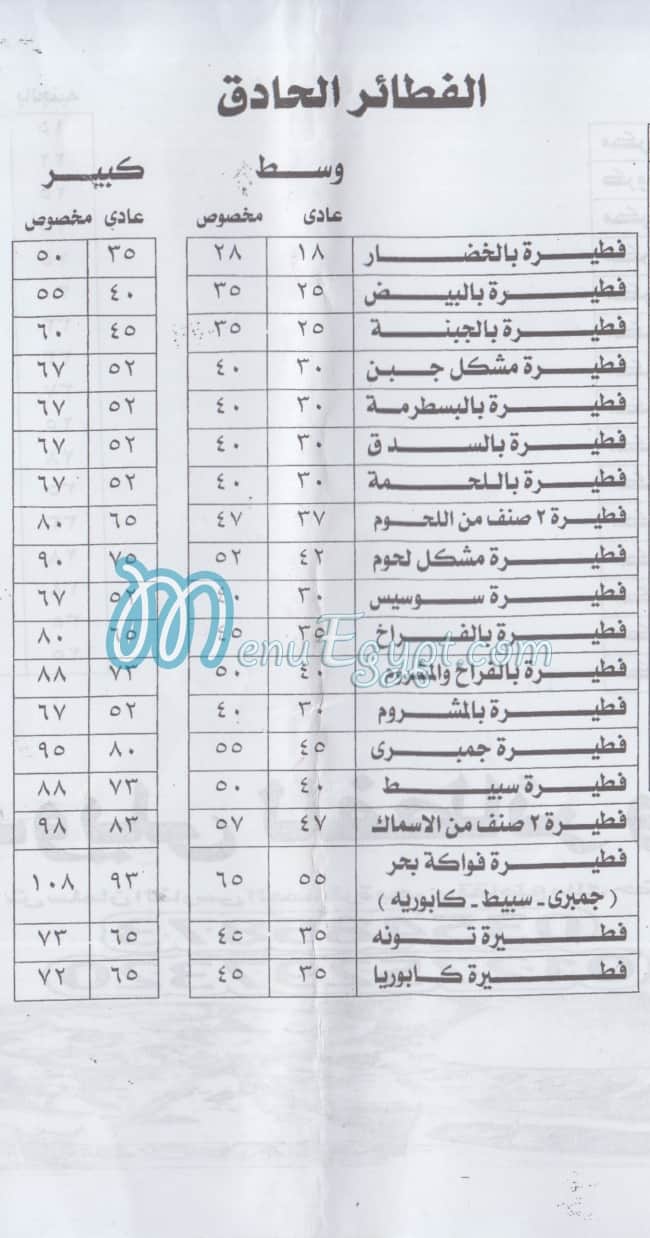 الفطائر الحادق
وسط كبير
عادى مخصوص عادي مخصوص
فطيرة بالخضار ١٨ ٢٨ ٣٥ ٥٠
فطيرة بالبيض ٢٥ ٣٥ ٤٠ ٥٥
فطيرة بالجبنة ٢٥ ٣٥ ٤٥ ٦٠
فطيرة مشكل جبن ٣٠ ٤٠ ٥٢ ٦٧
فطيرة بالبسطرمة ٣٠ ٤٠ ٥٢ ٦٧
فطيرة بالسدق ٣٠ ٤٠ ٥٢ ٦٧
فطيرة باللحمة ٣٠ ٤٠ ٥٢ ٦٧
فطيرة ٢ صنف من اللحوم ٣٧ ٤٧ ٦٥ ٨٠
فطيرة مشكل لحوم ٤٢ ٥٢ ٧٥ ٩٠
فطيرة سوسيس ٣٠ ٤٠ ٥٢ ٦٧
فطيرة بالفراخ ٣٥ ٤٥ ٦٥ ٨٠
MenuEgypt.com
فطيرة بالفراخ والمشروم ٤٠ ٥٠ ٧٣ ٨٨
فطيرة بالمشروم ٣٠ ٤٠ ٥٢ ٦٧
فطيرة جمبرى ٤٥ ٥٥ ٨٠ ٩٥
فطيرة سبيط ٤٠ ٥٠ ٧٣ ٨٨
فطيرة ٢ صنف من الاسماك ٤٧ ٥٧ ٨٣ ٩٨
فطيرة فواكة بحر ٥٥ ٦٥ ٩٣ ١٠٨
( جمبرى - سبيط - كابوريه )
فطيرة تونه ٣٥ ٤٥ ٦٥ ٧٣
فطيرة كابوريا ٣٥ ٤٥ ٦٥ ٧٢